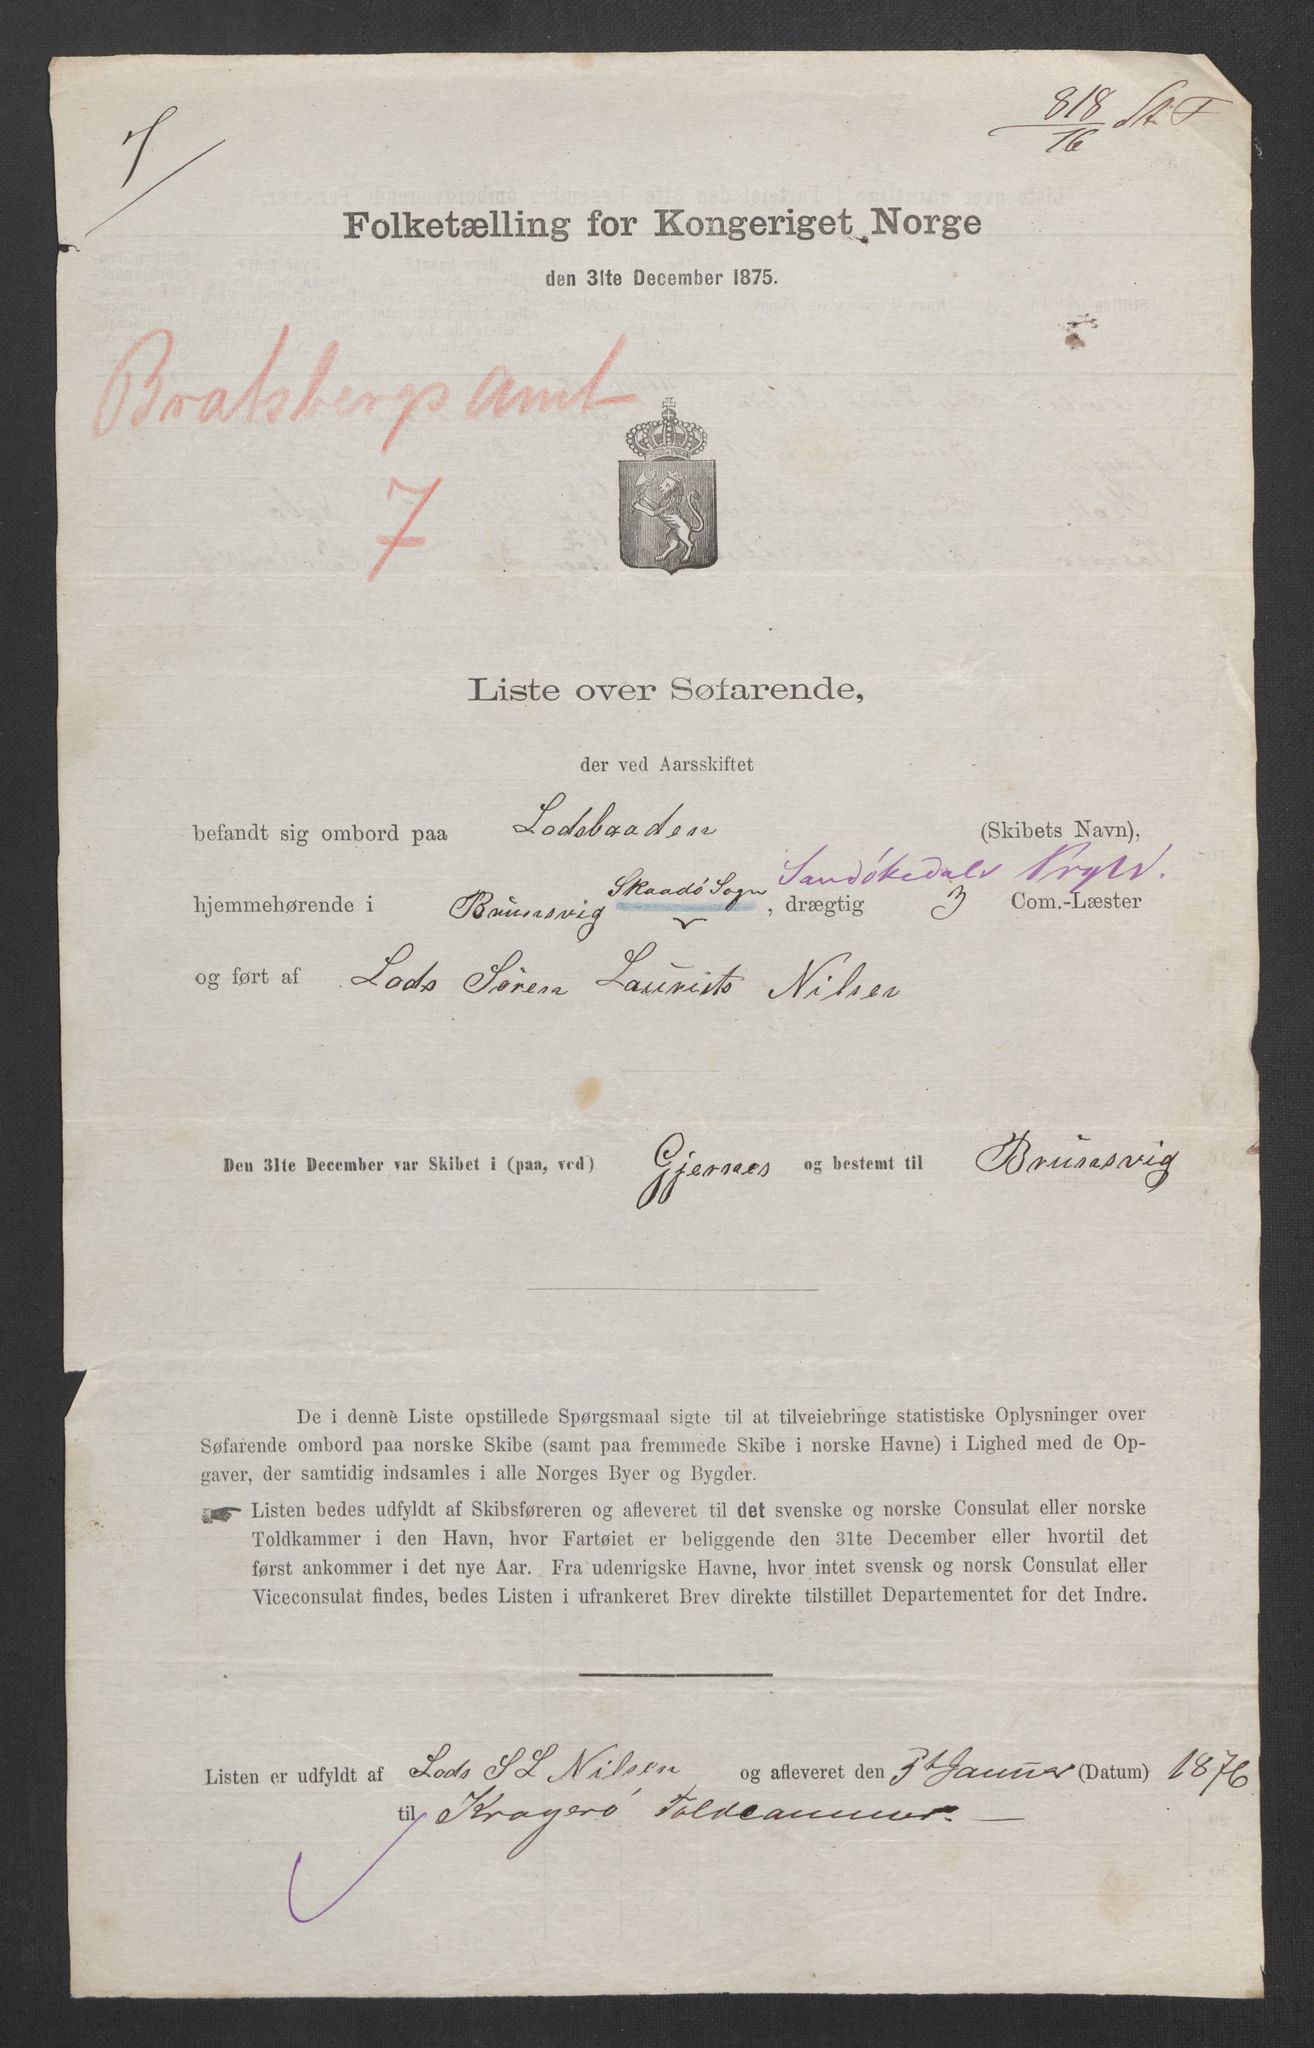 7
818
76 St. T
Folketælling for Kongeriget Norge
den 31te December 1875.
Bratsbergs Amt
7
Liste over Søfarende,
der ved Aarsskiftet
befandt sig ombord paa Lodsbaaden (Skibets Navn),
Skaadö Sogn Sandökedals Prgld.
hjemmehørende i Brunsvig, drægtig 3 Com.-Læster
og ført af Lods Sören Laurits Nilsen
Den 31te December var Skibet i (paa, ved) Gjernes og bestemt til Brunsvig
De i denne Liste opstillede Spørgsmaal sigte til at tilveiebringe statistiske Oplysninger over
Søfarende ombord paa norske Skibe (samt paa fremmede Skibe i norske Havne) i Lighed med de Op-
gaver, der samtidig indsamles i alle Norges Byer og Bygder.
Listen bedes udfyldt af Skibsføreren og afleveret til det svenske og norske Consulat eller norske
Toldkammer i den Havn, hvor Fartøiet er beliggende den 31te December eller hvortil det
først ankommer i det nye Aar. Fra udenrigske Havne, hvor intet svensk og norsk Consulat eller
Viceconsulat findes, bedes Listen i ufrankeret Brev direkte tilstillet Departementet for det Indre.
Listen er udfyldt af Lods S L Nilsen og afleveret den Januar (Datum) 1876
til Kragerö Toldcammer.